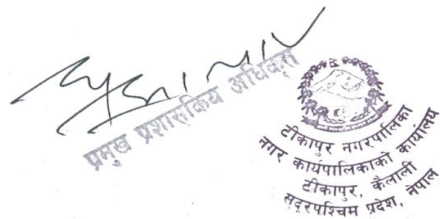 प्रमुख प्रशासकिय अधिकृत
टीकापुर नगरपालिका
नगर कार्यपालिकाको कार्यालय
टीकापुर, कैलाली
सुदूरपश्चिम प्रदेश, नेपाल